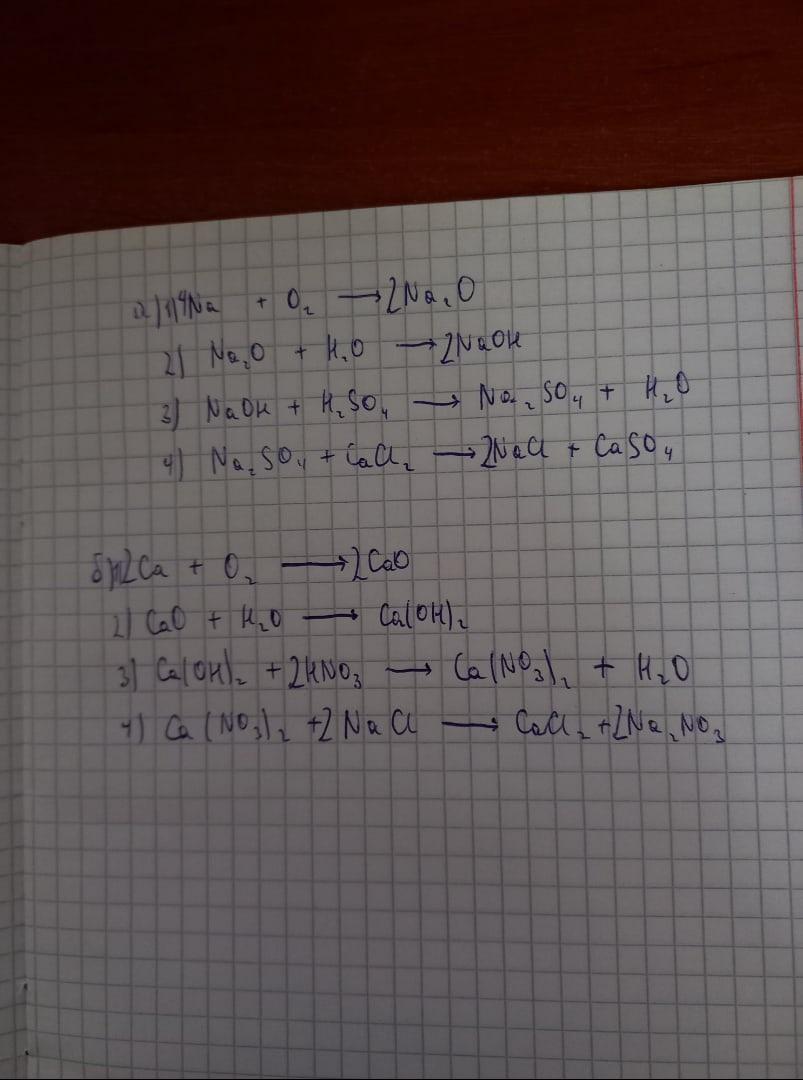 а) 1) 4Na + O₂ → 2Na₂O
2) Na₂O + H₂O → 2NaOH
3) NaOH + H₂SO₄ → Na₂SO₄ + H₂O
4) Na₂SO₄ + CaCl₂ → 2NaCl + CaSO₄
б) 1) 2Ca + O₂ → 2CaO
2) CaO + H₂O → Ca(OH)₂
3) Ca(OH)₂ + 2HNO₃ → Ca(NO₃)₂ + H₂O
4) Ca(NO₃)₂ + 2NaCl → CaCl₂ + 2Na₂NO₃